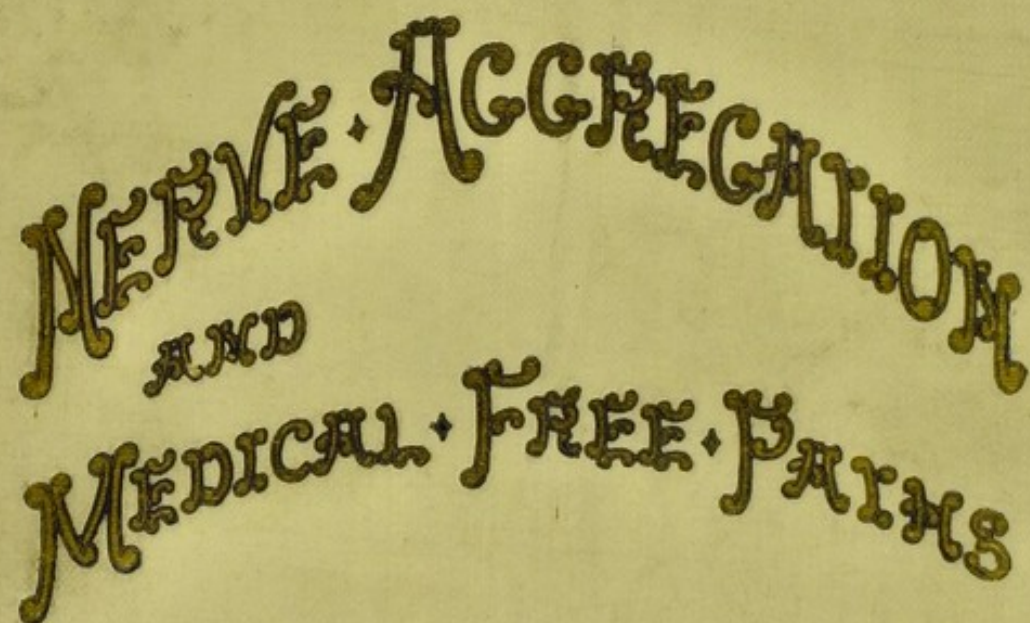 NERVE · AGGREGATION
AND
MEDICAL · FREE · PATHS